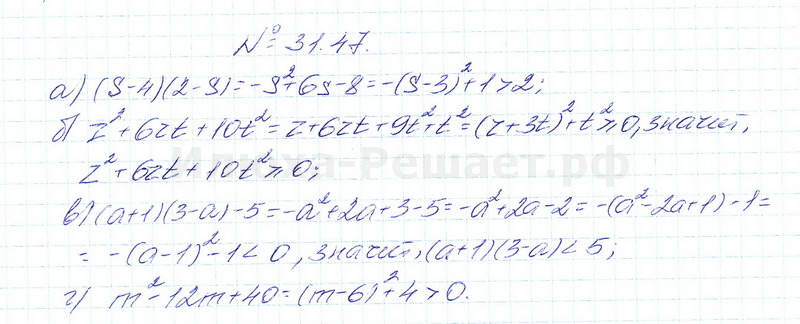 № 31.47.
а) (s-4)(2-s)=-s²+6s-8=-(s-3)²+1>2;
б) z²+6zt+10t²=z+6zt+9t²+t²=(z+3t)²+t²≥0, значит,
z²+6zt+10t²≥0;
в) (a+1)(3-a)-5=-a²+2a+3-5=-a²+2a-2=-(a²-2a+1)-1=
=-(a-1)²-1<0, значит, (a+1)(3-a)<5;
г) m²-12m+40=(m-6)²+4>0.